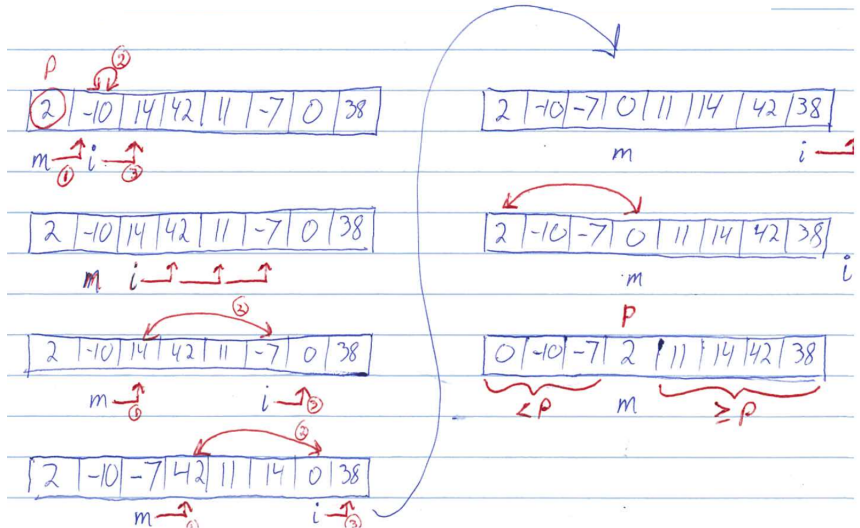 P ②
2 | -10 | 14 | 42 | 11 | -7 | 0 | 38
m ① i ③
2 | -10 | 14 | 42 | 11 | -7 | 0 | 38
m i
②
2 | -10 | 14 | 42 | 11 | -7 | 0 | 38
m ① i ③
②
2 | -10 | -7 | 42 | 11 | 14 | 0 | 38
m ① i ③
2 | -10 | -7 | 0 | 11 | 14 | 42 | 38
m i
2 | -10 | -7 | 0 | 11 | 14 | 42 | 38
m i
P
0 | -10 | -7 | 2 | 11 | 14 | 42 | 38
< P m ≥ P